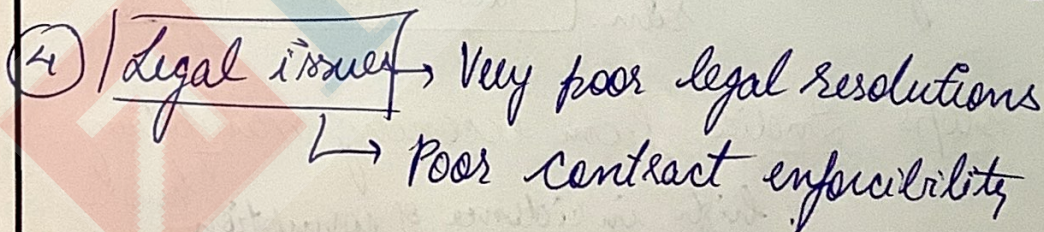 4 Legal issues → Very poor legal resolutions
↳ Poor contract enforcibility